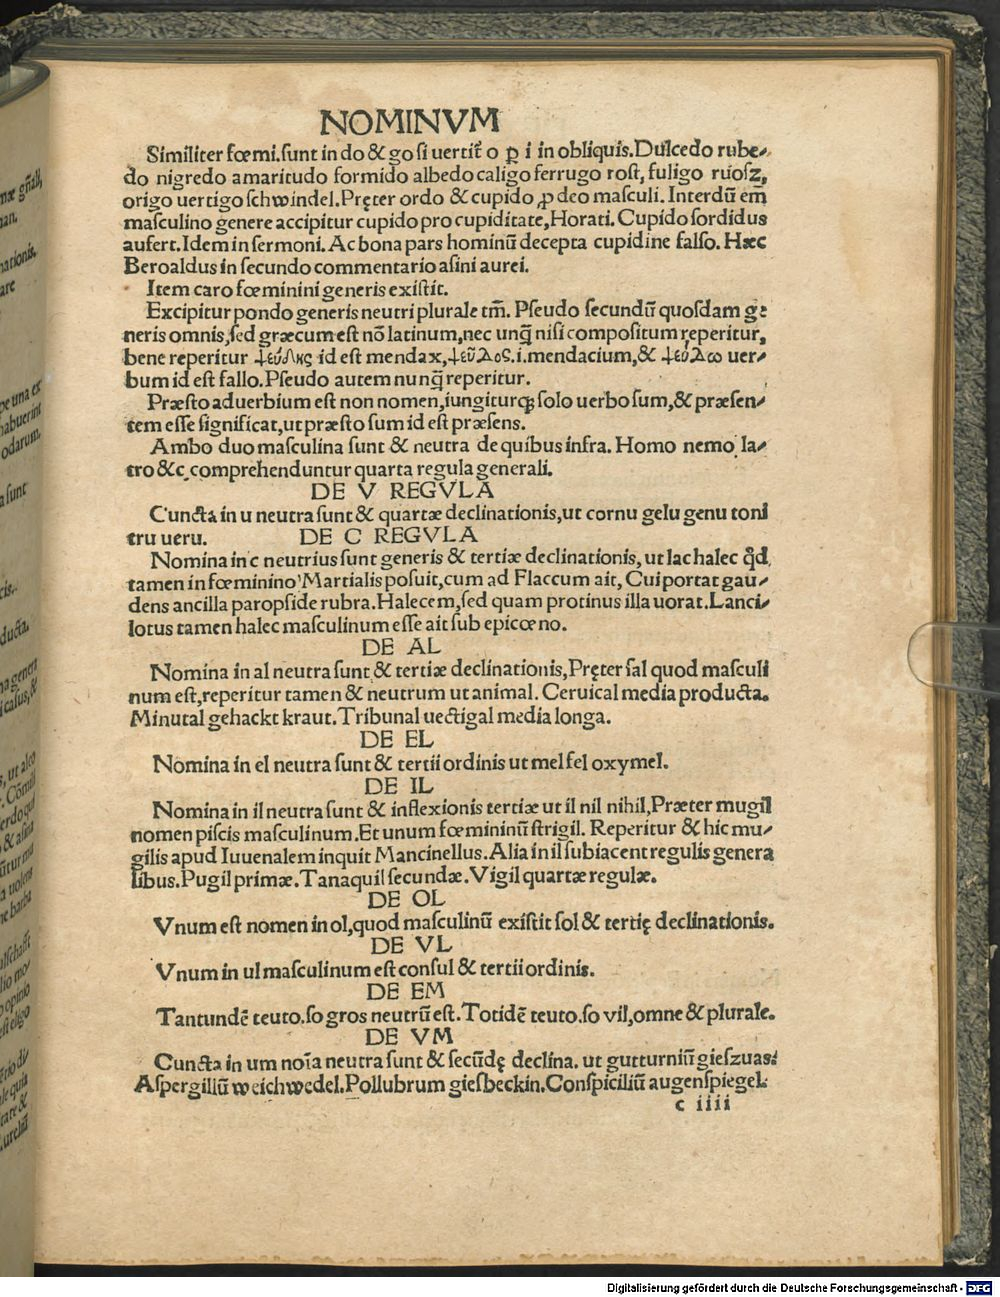 NOMINVM
Similiter fœmi.ſunt in do & go ſi uertit̃ o ꝑ i in obliquis.Dulcedo rube⸗
do nigredo amaritudo formido albedo caligo ferrugo roſt, fuligo ruosz,
origo uertigo ſchwindel.Pręter ordo & cupido ꝓ deo maſculi. Interdũ em̃
maſculino genere accipitur cupido pro cupiditate, Horati. Cupido ſordidus
aufert. Idem in ſermoni. Ac bona pars hominũ decepta cupidine falſo. Hæc
Beroaldus in ſecundo commentario aſini aurei.
Item caro fœminini generis exiſtit.
Excipitur pondo generis neutri plurale tm̃. Pſeudo ſecundũ quoſdam ge
neris omnis,ſed græcum eſt nõ latinum,nec unq̃ niſi compoſitum reperitur,
bene reperitur ψεύδης id eſt mendax,ψεῦδος.i.mendacium,& ψεύδω uer⸗
bum id eſt fallo.Pſeudo autem nunq̃ reperitur.
Præſto aduerbium eſt non nomen,iungiturqꝫ ſolo uerbo ſum,& præſen⸗
tem eſſe ſignificat,ut præſto ſum id eſt præſens.
Ambo duo maſculina ſunt & neutra de quibus infra. Homo nemo la⸗
tro &c comprehenduntur quarta regula generali.
DE V REGVLA
Cuncta in u neutra ſunt & quartæ declinationis,ut cornu gelu genu toni
tru ueru. DE C REGVLA
Nomina in c neutrius ſunt generis & tertiæ declinationis, ut lac halec qd̃
tamen in fœminino Martialis poſuit,cum ad Flaccum ait, Cui portat gau⸗
dens ancilla paropſide rubra.Halecem,ſed quam protinus illa uorat.Lanci⸗
lotus tamen halec maſculinum eſſe ait ſub epicœno.
DE AL
Nomina in al neutra ſunt & tertiæ declinationis,Pręter ſal quod maſculi
num eſt,reperitur tamen & neutrum ut animal. Ceruical media producta.
Minutal gehackt kraut.Tribunal uectigal media longa.
DE EL
Nomina in el neutra ſunt & tertii ordinis ut mel fel oxymel.
DE IL
Nomina in il neutra ſunt & inflexionis tertiæ ut il nil nihil,Præter mugil
nomen piſcis maſculinum.Et unum fœmininũ ſtrigil. Reperitur & hic mu⸗
gilis apud Iuuenalem inquit Mancinellus.Alia in il ſubiacent regulis genera
libus.Pugil primæ.Tanaquil ſecundæ.Vigil quartæ regulæ.
DE OL
Vnum eſt nomen in ol,quod maſculinũ exiſtit ſol & tertię declinationis.
DE VL
Vnum in ul maſculinum eſt conſul & tertii ordinis.
DE EM
Tantundẽ teuto.ſo gros neutrũ eſt. Totidẽ teuto.ſo vil,omne & plurale.
DE VM
Cuncta in um noĩa neutra ſunt & ſecũdę declina. ut gutturniũ gieszuas:
Aſpergiliũ weichwedel.Pollubrum giesbeckin.Conſpiciliũ augenſpiegel
c iiii
Digitalisierung gefördert durch die Deutsche Forschungsgemeinschaft - DFG